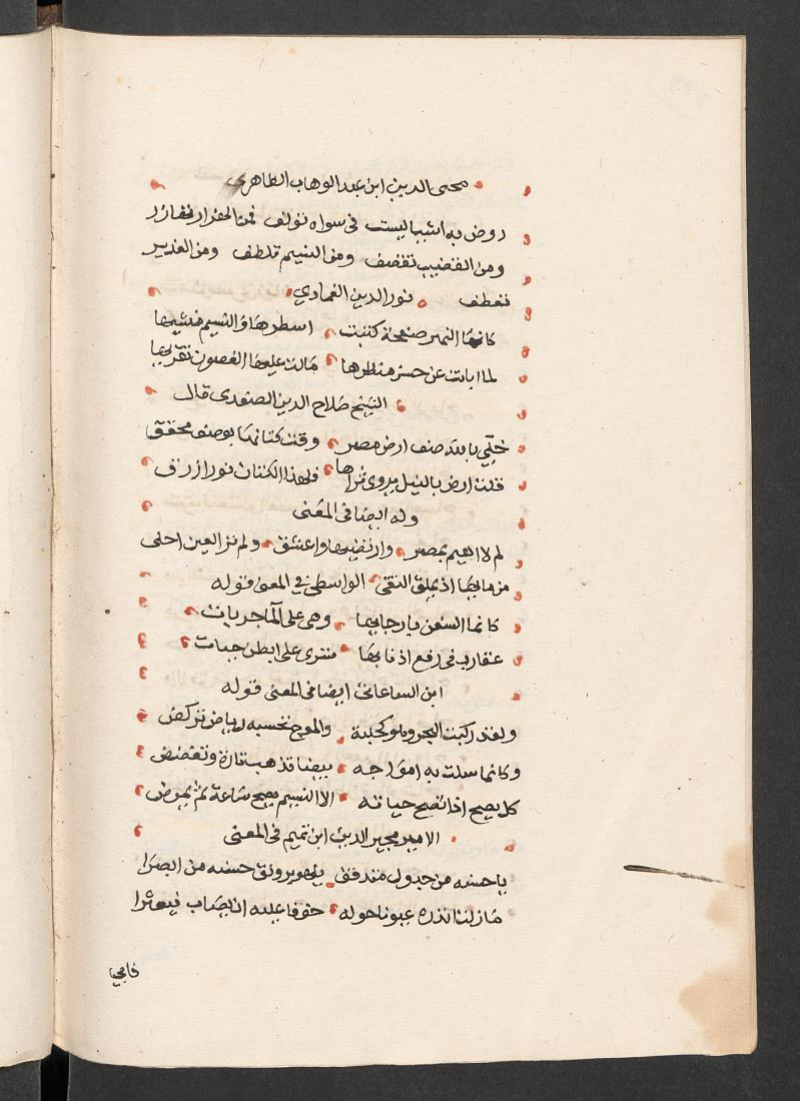 محيى الدين ابن عبد الوهاب الطاهرى
روض به اشيا ليست فى سواه تولف فمن
ومن القضيب تقصف ومن النسيم تلطف ومن الغدير
تعطف نور الدين الغمادي
كانما النهر صفحة كتبت اسطرها والنسيم منشيها
لما ابانت عن حسن منظرها مالت عليها الغصون تقريها
الشيخ صلاح الدين الصفدى قال
خلّى بالله صف ارض مصر وقت كتانها بوصف محقق
قلت ارض بالنيل يروى ثراها فلهذا الكتان نور ازرق
وله ايضا فى المعنى
لم لا اهيم بمصر وارتضيها واعشق ولم تر العين احلى
من مايها اذ تملق الواسطى في المعنى قوله
كانما السفن بارجايها وهى على الما جريات
عقارب فى رفع اذنابها تسرى على ابطن حيات
ابن الساعاتى ايضا فى المعنى قوله
ولقد ركبت البحر وهو كحلبة والموج تحسبه رياض تركض
وكانما سلت به امواجه بيضا تذهب تارة وتفضض
كل يصح اذا تصح حياته الا النسيم يصح ساعة ثم يمرض
الامير مجير الدين ابن تميم فى المعنى
يا حسنه من جدول متدفق يلهو برونق حسنه من ابصرا
مازلت انذره عيونا حوله خوفا عليه ان يصاب فيعثرا
فابى